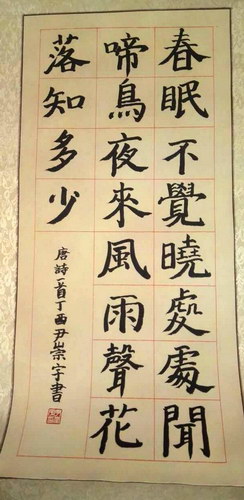 春眠不覺曉處處聞
啼鳥夜來風雨聲花
落知多少
唐詩一首丁酉尹崇宇書